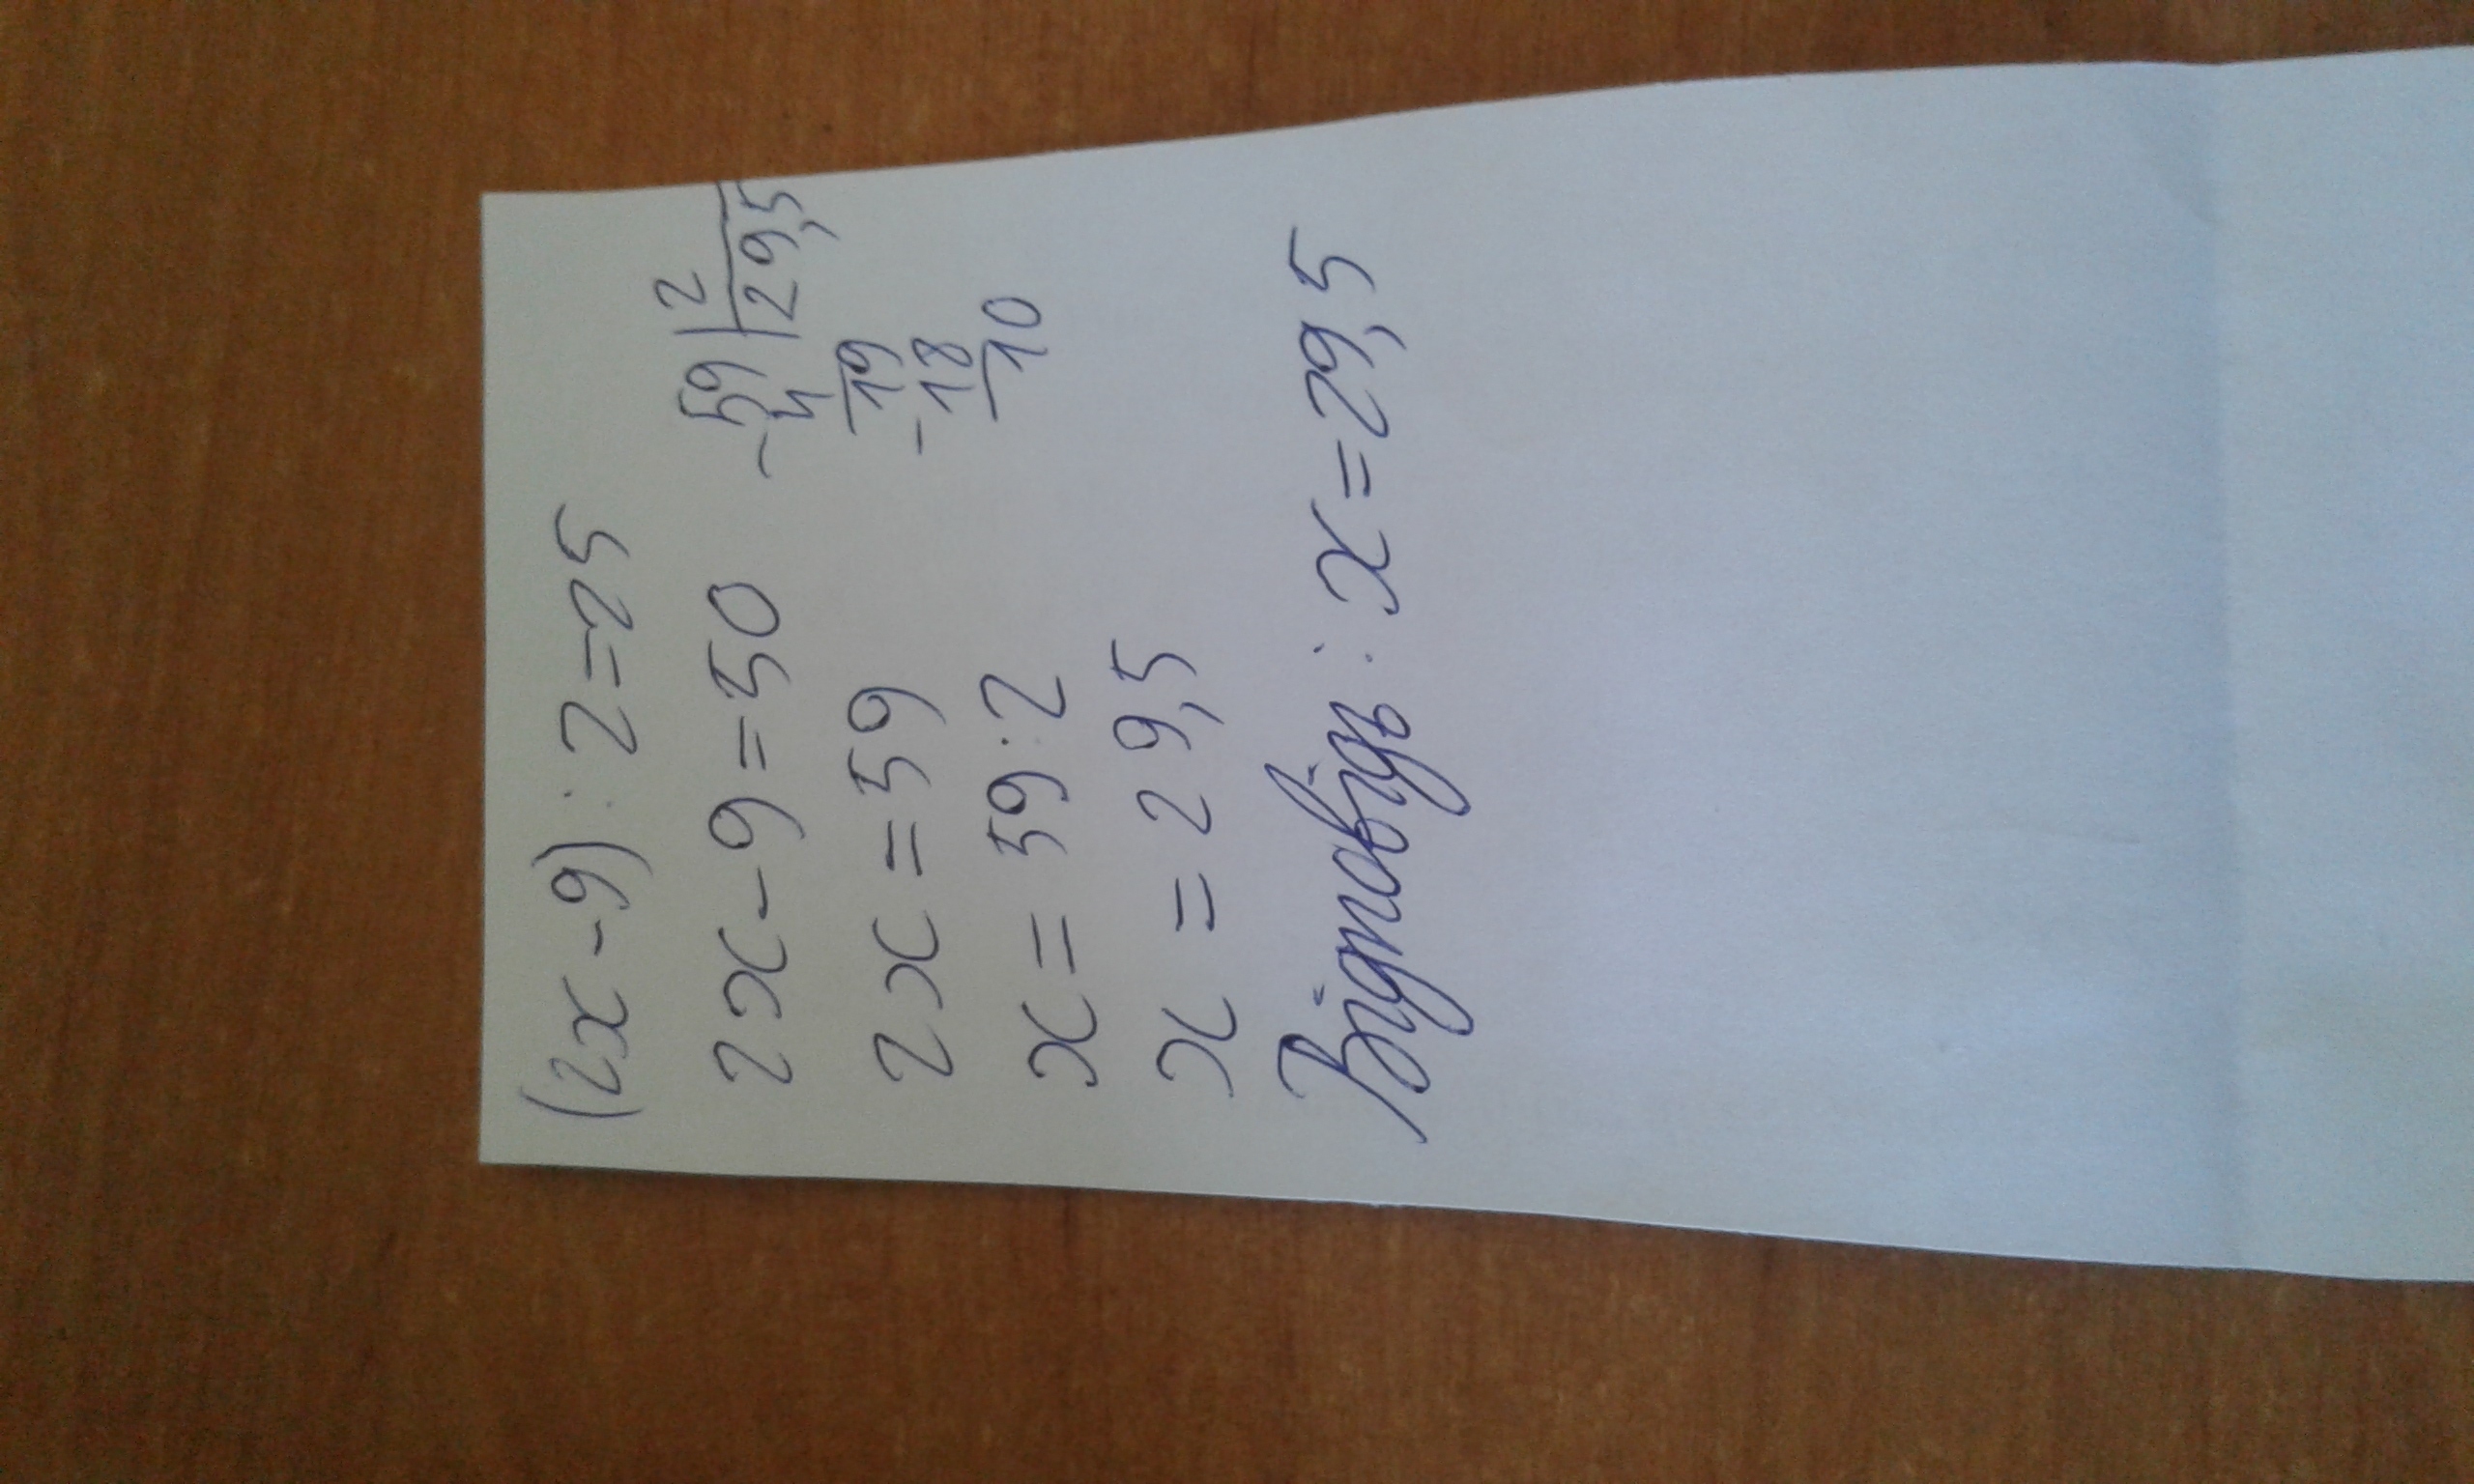 (2x - 9) : 2 = 25
2x - 9 = 50
2x = 59
x = 59 : 2
x = 29,5
Відповідь : x = 29,5
59 | 2
- 4 | 29,5
19
- 18
10